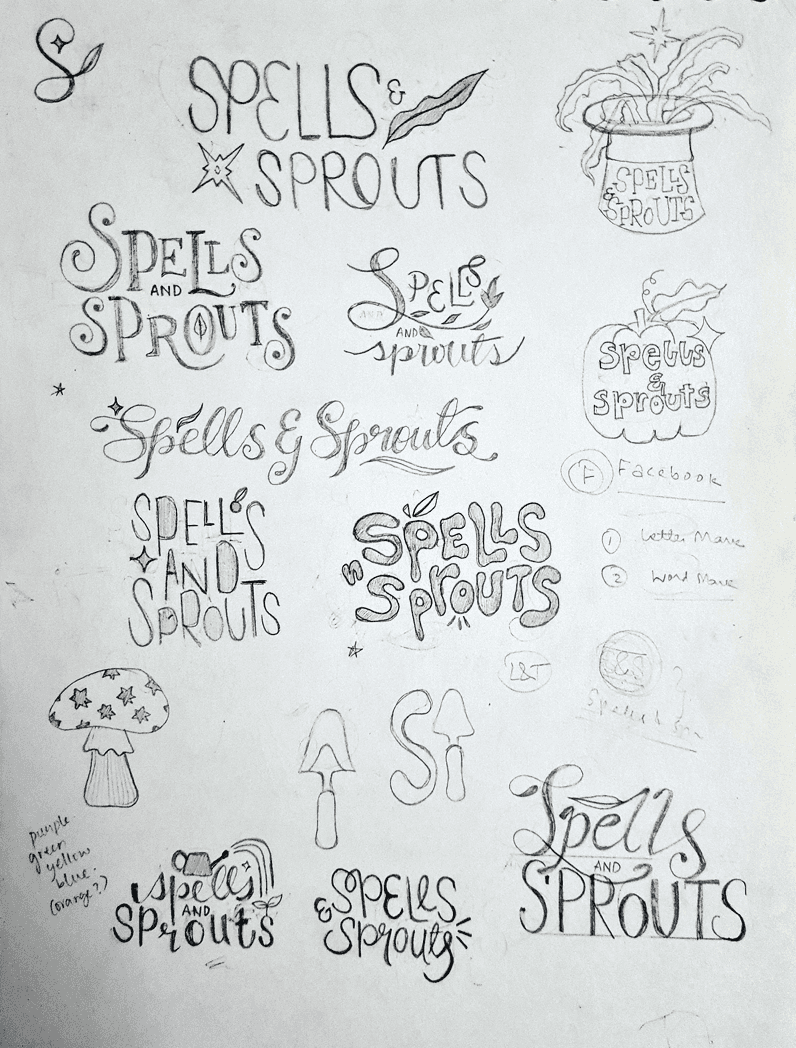 S
SPELLS &
SPROUTS
SPELLS
&
SPROUTS
SPELLS
AND
SPROUTS
SPELLS
AND
sprouts
spells
&
sprouts
Spells & Sprouts
F Facebook
SPELLS
AND
SPROUTS
SPELLS
n
SprouTS
1 Letter Mark
2 Word Mark
L&T
&S
S
purple
green
yellow
blue.
(orange?)
spells
AND
SProuts
SPELLS
& Sprouts
Spells
AND
SPROUTS